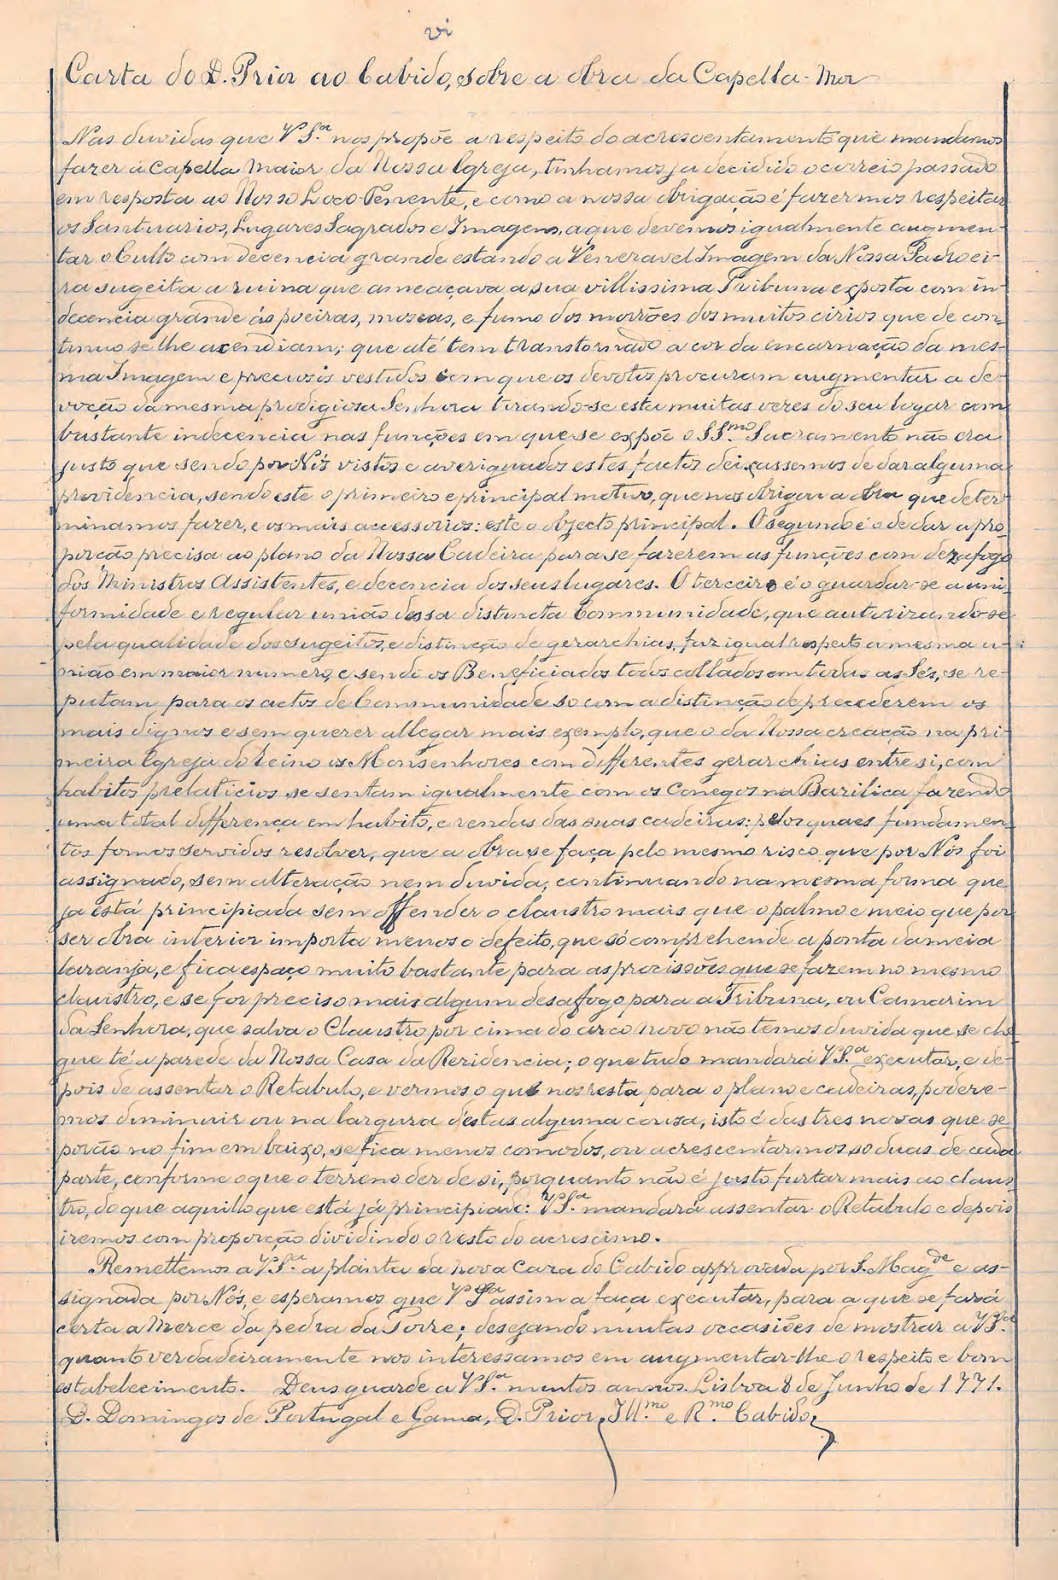 vi
Carta do D. Prior ao Cabido, sobre a obra da Capella-Mor
Nas duvidas que VS.ª nos propõe a respeito do acrescentamento que mandamos
fazer á Capella Maior da Nossa Igreja, tinhamos ja decidido o correio passado
em resposta ao Nosso Loco-Tenente, e como a nossa obrigação é fazermos respeitar
os Santuarios, Lugares Sagrados e Imagens, a que devemos igualmente augmen-
tar o Culto com decencia grande estando a Veneravel Imagem da Nossa Padroei-
ra sugeita a ruina que ameaçava a sua villissima Tribuna exposta com in-
decencia grande ás poeiras, moscas, e fumo dos morrões dos muitos cirios que de con-
tinuo se lhe acendiam; que até tem transtornado a cor da encarnação da mes-
ma Imagem e preciosos vestidos com que os devotos procuram augmentar a de-
voção da mesma prodigiosa Senhora tirando-se esta muitas vezes do seu logar com
bastante indecencia nas funções em que se expõe o SS.mo Sacramento não era
justo que sendo por Nós vistos e averiguados estes factos deixassemos de dar alguma
providencia, sendo este o primeiro e principal motivo, que nos obrigou a obra que deter-
minamos fazer, e os mais accessorios: este o objecto principal. O segundo é o de dar a pro-
porção precisa ao plano da Nossa Cadeira para se fazerem as funções com dezafogo
dos Ministros Assistentes, e decencia dos seus lugares. O terceiro é o guardar-se a uni-
formidade e regular união dessa distincta Communidade, que autorizando-se
pela qualidade dos sugeitos, e distincção de gerarchias, faz igual respeito a mesma u-
nião em maior numero, e sendo os Beneficiados todos collados em todas as Sés, se re-
putam para os actos de Communidade so com a distinção de precederem os
mais dignos e sem querer allegar mais exemplo, que o da Nossa creação na pri-
meira Igreja do Reino os Monsenhores com differentes gerarchias entre si, com
habitos prelaticios se sentam igualmente com os Conegos na Bazilica fazendo
uma total differença em habito, e rendas das suas cadeiras: pelos quaes fundamen-
tos fomos servidos resolver, que a obra se faça pelo mesmo risco que por Nós foi
assignado, sem alteração nem duvida, continuando na mesma forma que
ja está principiada sem offender o claustro mais que o palmo e meio que por
ser obra interior importa menos o defeito, que só comprehende a ponta da meia
laranja, e fica espaço muito bastante para as procissões que se fazem no mesmo
claustro, e se for preciso mais algum desafogo para a Tribuna, ou Camarim
da Senhora, que salva o Claustro por cima do arco novo não temos duvida que se che-
gue té a parede da Nossa Casa da Rezidencia; o que tudo mandará VS.ª executar, e de-
pois de assentar o Retabulo, e vermos o que nos resta para o plano e cadeiras, podere-
mos diminuir ou na largura d'estas alguma cousa, isto é das tres novas que se
porão no fim em baixo, se fica menos comodos, ou acrescentarmos so duas de cada
parte, conforme o que o terreno der de si, porquanto não é justo furtar mais ao claus-
tro, do que aquillo que está já principiado: VS.ª mandará assentar o Retabulo e depois
iremos com proporção dividindo o resto do acrescimo.
Remettemos a VS.ª a planta da nova Caza do Cabido approvada por S. Mag.de e as-
signada por Nós, e esperamos que VS.ª assim a faça executar, para a que se fará
certa a Merce da pedra da Torre; desejando muitas occasiões de mostrar a VS.ª
quanto verdadeiramente nos interessamos em augmentar-lhe o respeito e bom
estabelecimento. Deus guarde a VS.ª muitos annos. Lisboa 8 de Junho de 1771.
D. Domingos de Portugal e Gama, D. Prior, Ill.mo e R.mo Cabido,